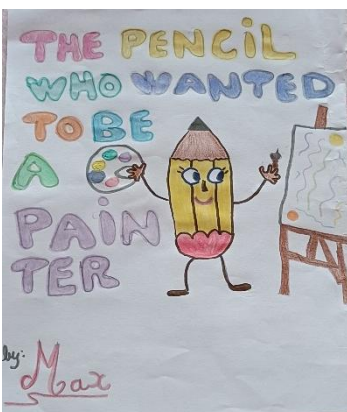 THE PENCiL
WHO WANTED
TO BE
A
PAiN
TER
by: Max